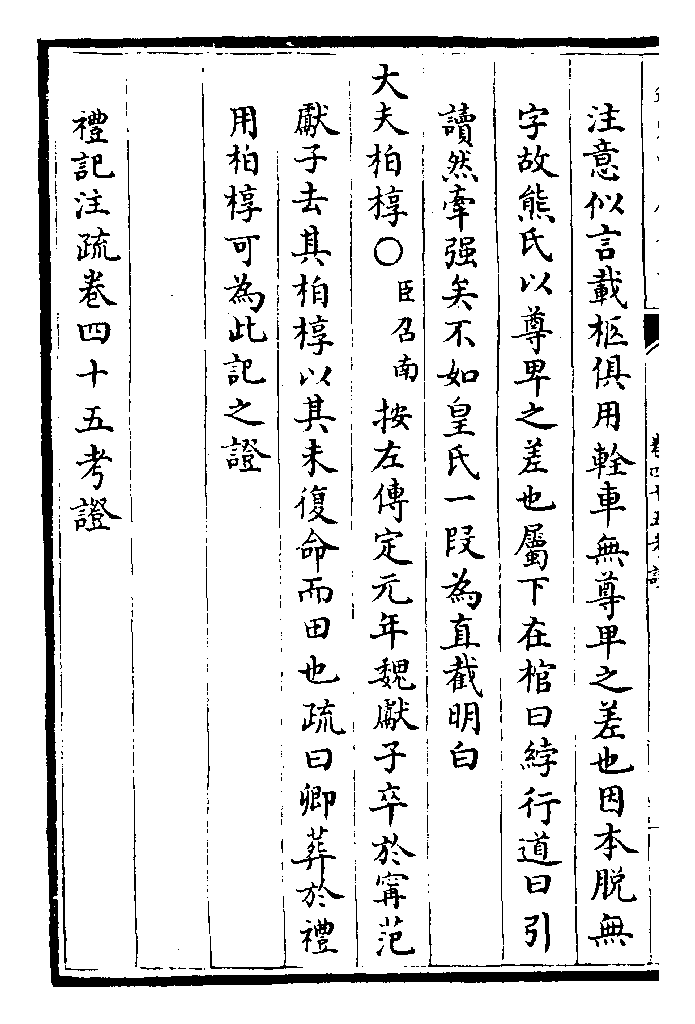 卷四十五考證
注意似言載柩俱用輇車無尊卑之差也因本脱無
字故熊氏以尊卑之差也屬下在棺曰綍行道曰引
讀然牽强矣不如皇氏一段為直截明白
大夫柏椁〇臣召南按左傳定元年魏獻子卒於甯范
獻子去其柏椁以其未復命而田也疏曰卿葬於禮
用柏椁可為此記之證
禮記注疏卷四十五考證